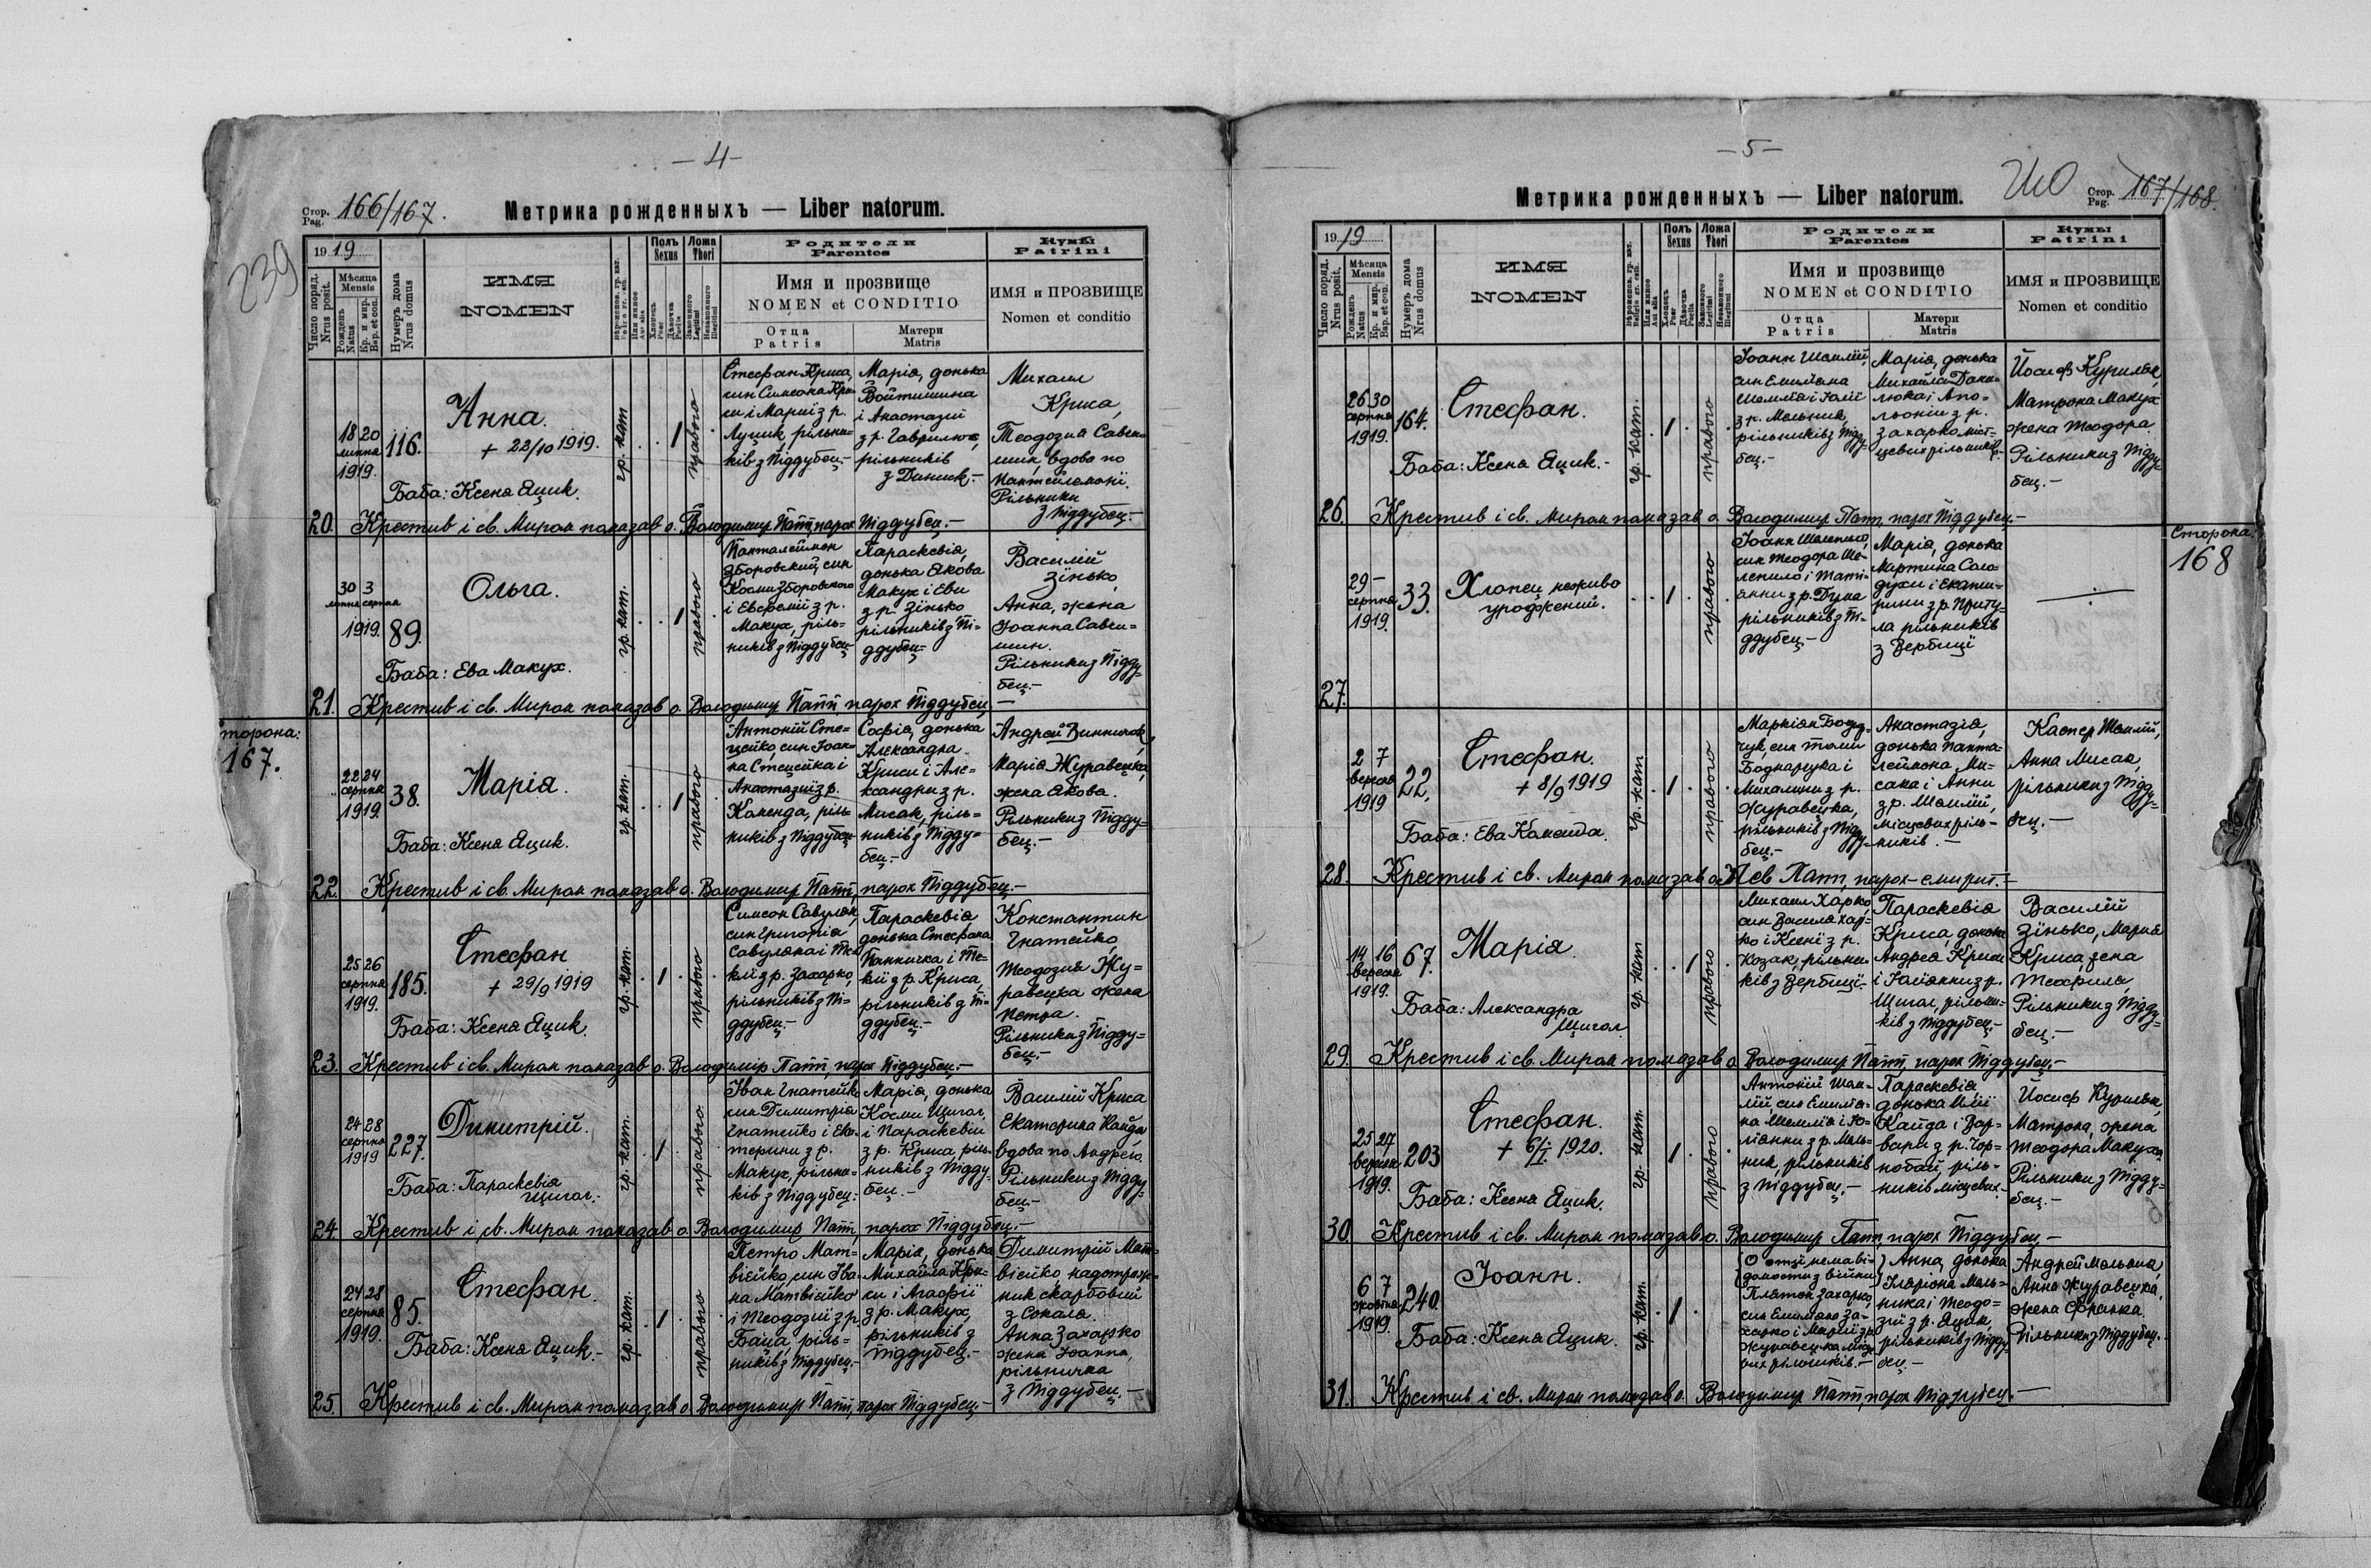 – 4 –
Стор.
Pag. 166/167.
Метрика рожденныхъ — Liber natorum.
239
19 19
Число поряд.
Nrus posit.
Мѣсяца
Mensis
Рожденъ
Natus
Кр. и мир.
Bap. et con.
Нумеръ дома
Nrus domus
ИМЯ
NOMEN
Полъ
Sexus
Хлопецъ
Puer
Дѣвочка
Puella
Ложа
Thori
Законного
Legitimi
Незаконного
Illegitimi
Родители
Parentes
Имя и прозвище
NOMEN et CONDITIO
Отца
Patris
Матери
Matris
Кумы
Patrini
ИМЯ и ПРОЗВИЩЕ
Nomen et conditio
18 20
липня
1919.
116.
Анна.
+ 23/10 1919.
Баба: Ксеня Яцик.
гр. кат
1
правого
Стефан Криса,
син Симеона Кри-
си і Марії з р.
Луцик, рільни-
ків з Піддубец.-
Марія, донька
Войтишина
і Анастазії
з р. Гаврилюк,
рільників
Михаил
Криса,
Теодозия Савчи-
шин, вдова по
Рільники
з Піддубец.-
20. Крестив і св. Миром помазав о. Володимир Патп, парох Піддубец.-
30 3
липня серпня
1919.
89.
Ольга.
Баба: Ева Макух.
гр. кат.
1
правого
Панталеймон
Зборовский, син
Косми Зборовского
і Евфемії з р.
Макух, ріль-
ників з Піддубец
Параскевія,
донька Якова
Макух і Еви
з р. Зінько
рільників з Пі-
ддубец-
Василій
Зінько,
Анна, жена
Іоанна Савчи-
шин.
Рільники з Підду-
бец.-
21. Крестив і св. Миром помазав о. Володимир Патп, парох Піддубец –
торона:
167.
22 24
серпня
1919.
38.
Марія.
Баба: Ксеня Яцик.
гр. кат.
1
правого
Антоній Сте-
цейко, син Іоан-
на Стецейка і
Анастазії з р.
Каменда, ріль-
ників з Піддубец
Софія, донька
Александра
Криси і Але-
ксандри з р.
Мисак, ріль-
ників з Підду-
бец.-
Андрей Винничок,
Марія Журавецка,
жена Якова.
Рільники з Підду-
бец.-
22. Крестив і св. Миром помазав о. Володимир Патп, парох Піддубец.-
25 26
серпня
1919.
185.
Стефан
+ 29/9 1919
Баба: Ксеня Яцик.
гр. кат.
1
правого
Симеон Савуляк,
син Григорія
Савуляка і Те-
клі з р. Захарко,
рільників з Пі-
ддубец.-
Параскевія
донька Стефана
Панничка і Те-
клі з р. Криса,
рільників з Пі-
ддубец.-
Константин
Гнатейко,
Теодозия Жу-
равецка жена
Петра.
Рільники з Підду-
бец.-
23. Крестив і св. Миром помазав о. Володимір Патп, парох Піддубец.-
24 28
серпня
1919
227.
Димитрій.
Баба: Параскевія
Щигол.-
гр. кат.
1
правого
Іван Гнатейко
син Димитрія
Гнатейко і Ека-
терини з р.
Макух, рільни-
ків з Піддубец.-
Марія, донька
Косми Щигол,
і Параскевії
з р. Криса, ріль-
ників з Підду-
бец.-
Василій Криса
Екатерина Кайда
вдова по Андрею.
Рільники з Підду-
бец.-
24. Крестив і св. Миром помазав о. Володимир Патп, парох Піддубец.-
24 28
серпня
1919.
85.
Стефан.
Баба: Ксеня Яцик.-
гр. кат.
1
правого
Петро Мат-
вієйко, син Іва-
на Матвієйко
і Теодозії з р.
Баца, ріль-
ників з Піддубец.-
Марія, донька
Михайла Кри-
си і Агафії
з р. Макух,
рільників з
Піддубец.-
Димитрій Мат-
вієйко, надстраж-
ник скарбовий
з Сокаля.
Анна Захарко
жена Іоанна,
рільничка
з Піддубец.-
25. Крестив і св. Миром помазав о. Володимир Патп, парох Піддубец.-
– 5 –
Метрика рожденныхъ — Liber natorum.
Стор.
Pag. 167/168.
19 19
Число поряд.
Nrus posit.
Мѣсяца
Mensis
Рожденъ
Natus
Кр. и мир.
Bap. et con.
Нумеръ дома
Nrus domus
ИМЯ
NOMEN
Полъ
Sexus
Хлопецъ
Puer
Дѣвочка
Puella
Ложа
Thori
Законного
Legitimi
Незаконного
Illegitimi
Родители
Parentes
Имя и прозвище
NOMEN et CONDITIO
Отца
Patris
Матери
Matris
Кумы
Patrini
ИМЯ и ПРОЗВИЩЕ
Nomen et conditio
26 30
серпня
1919.
164.
Стефан.
Баба: Ксеня Яцик.-
гр. кат.
1
правого
Іоанн Шемлій,
син Емиліана
Шемлія і Юлії
з р. Мельник,
рільників з Підду-
бец.-
Марія, донька
Михайла Дани-
люка і Апо-
льонії з р.
Захарко міст-
цевих рільників.-
Йосиф Куриляк,
Матрона Макух
жена Теодора.
Рільники з Підду-
бец.-
26. Крестив і св. Миром помазав о. Володимир Патп, парох Піддубец.-
Сторона:
168
29 –
серпня
1919.
33.
Хлопец неживо
уроджений.
1
правого
Іоанн Шелепило,
син Теодора Ше-
лепило і Таті-
янни з р. Дума
рільників з Пі-
ддубец.-
Марія, донька
Мартина Соло-
духи і Екате-
рини з р. Приту-
ла рільників
з Вербиці
27.
2 7
вересня
1919
22.
Стефан.
+ 8/9 1919
Баба: Ева Каменда.
гр. кат
1
правого
Маркіян Боднар-
чук, син Томи
Боднарчука і
Михалини з р.
Журавецка,
рільників з Підду-
бец.-
Анастазія,
донька Панта-
леймона Ми-
сака і Анни
з р. Шемлій,
місцевих ріль-
ників.-
Каспер Шемлій,
Анна Мисак,
рільники з Підду-
бец.-
28. Крестив і св. Миром помазав о. Лев Патп, парох-емерит.-
14 16
вересня
1919.
67.
Марія.
Баба: Александра
Щигол
гр. кат
1
правого
Михаил Харко,
син Василя Хар-
ко і Ксені з р.
Козак, рільни-
ків з Вербиці.-
Параскевія
Криса, донька
Андрея Криси
і Юліянни з р.
Щигол, рільни-
ків з Піддубец.-
Василій
Зінько, Мария
Криса, жена
Теофила,
Рільники з Підду-
бец.-
29. Крестив і св. Миром помазав о. Володимир Патп, парох Піддубец.-
25 27
вересня
1919.
203
Стефан.
+ 6/I 1920.
Баба: Ксеня Яцик.
гр. кат.
1
правого
Антоній Шем-
лій, син Емилія-
на Шемлія і Ю-
ліянни з р. Мель-
ник, рільників
з Піддубец.-
Параскевія
донька Іллі
Кайда і Вар-
вари з р. Чор-
нобай, ріль-
ників місцевих.-
Йосиф Куриляк,
Матрона, жена
Теодора Макуха
Рільники з Підду-
бец.-
30. Крестив і св. Миром помазав о. Володимир Патп, парох Піддубец.-
6 7
жовтня
1919.
240.
Іоанн.
Баба: Ксеня Яцик.
гр. кат.
1
О отці нема ві-
домости з війни
Платон Захарко,
син Емиліяна За-
харко і Марії з р.
Журавецка місце-
вих рільників.-
Анна, донька
Іляріона Мель-
ника і Теодо-
зії з р. Яцик,
рільників з Підду-
бец.-
Андрей Мельник,
Анна Журавецка,
жена Франка.
Рільники з Піддубец.-
31. Крестив і св. Миром помазав о. Володимир Патп, парох Піддубец.-